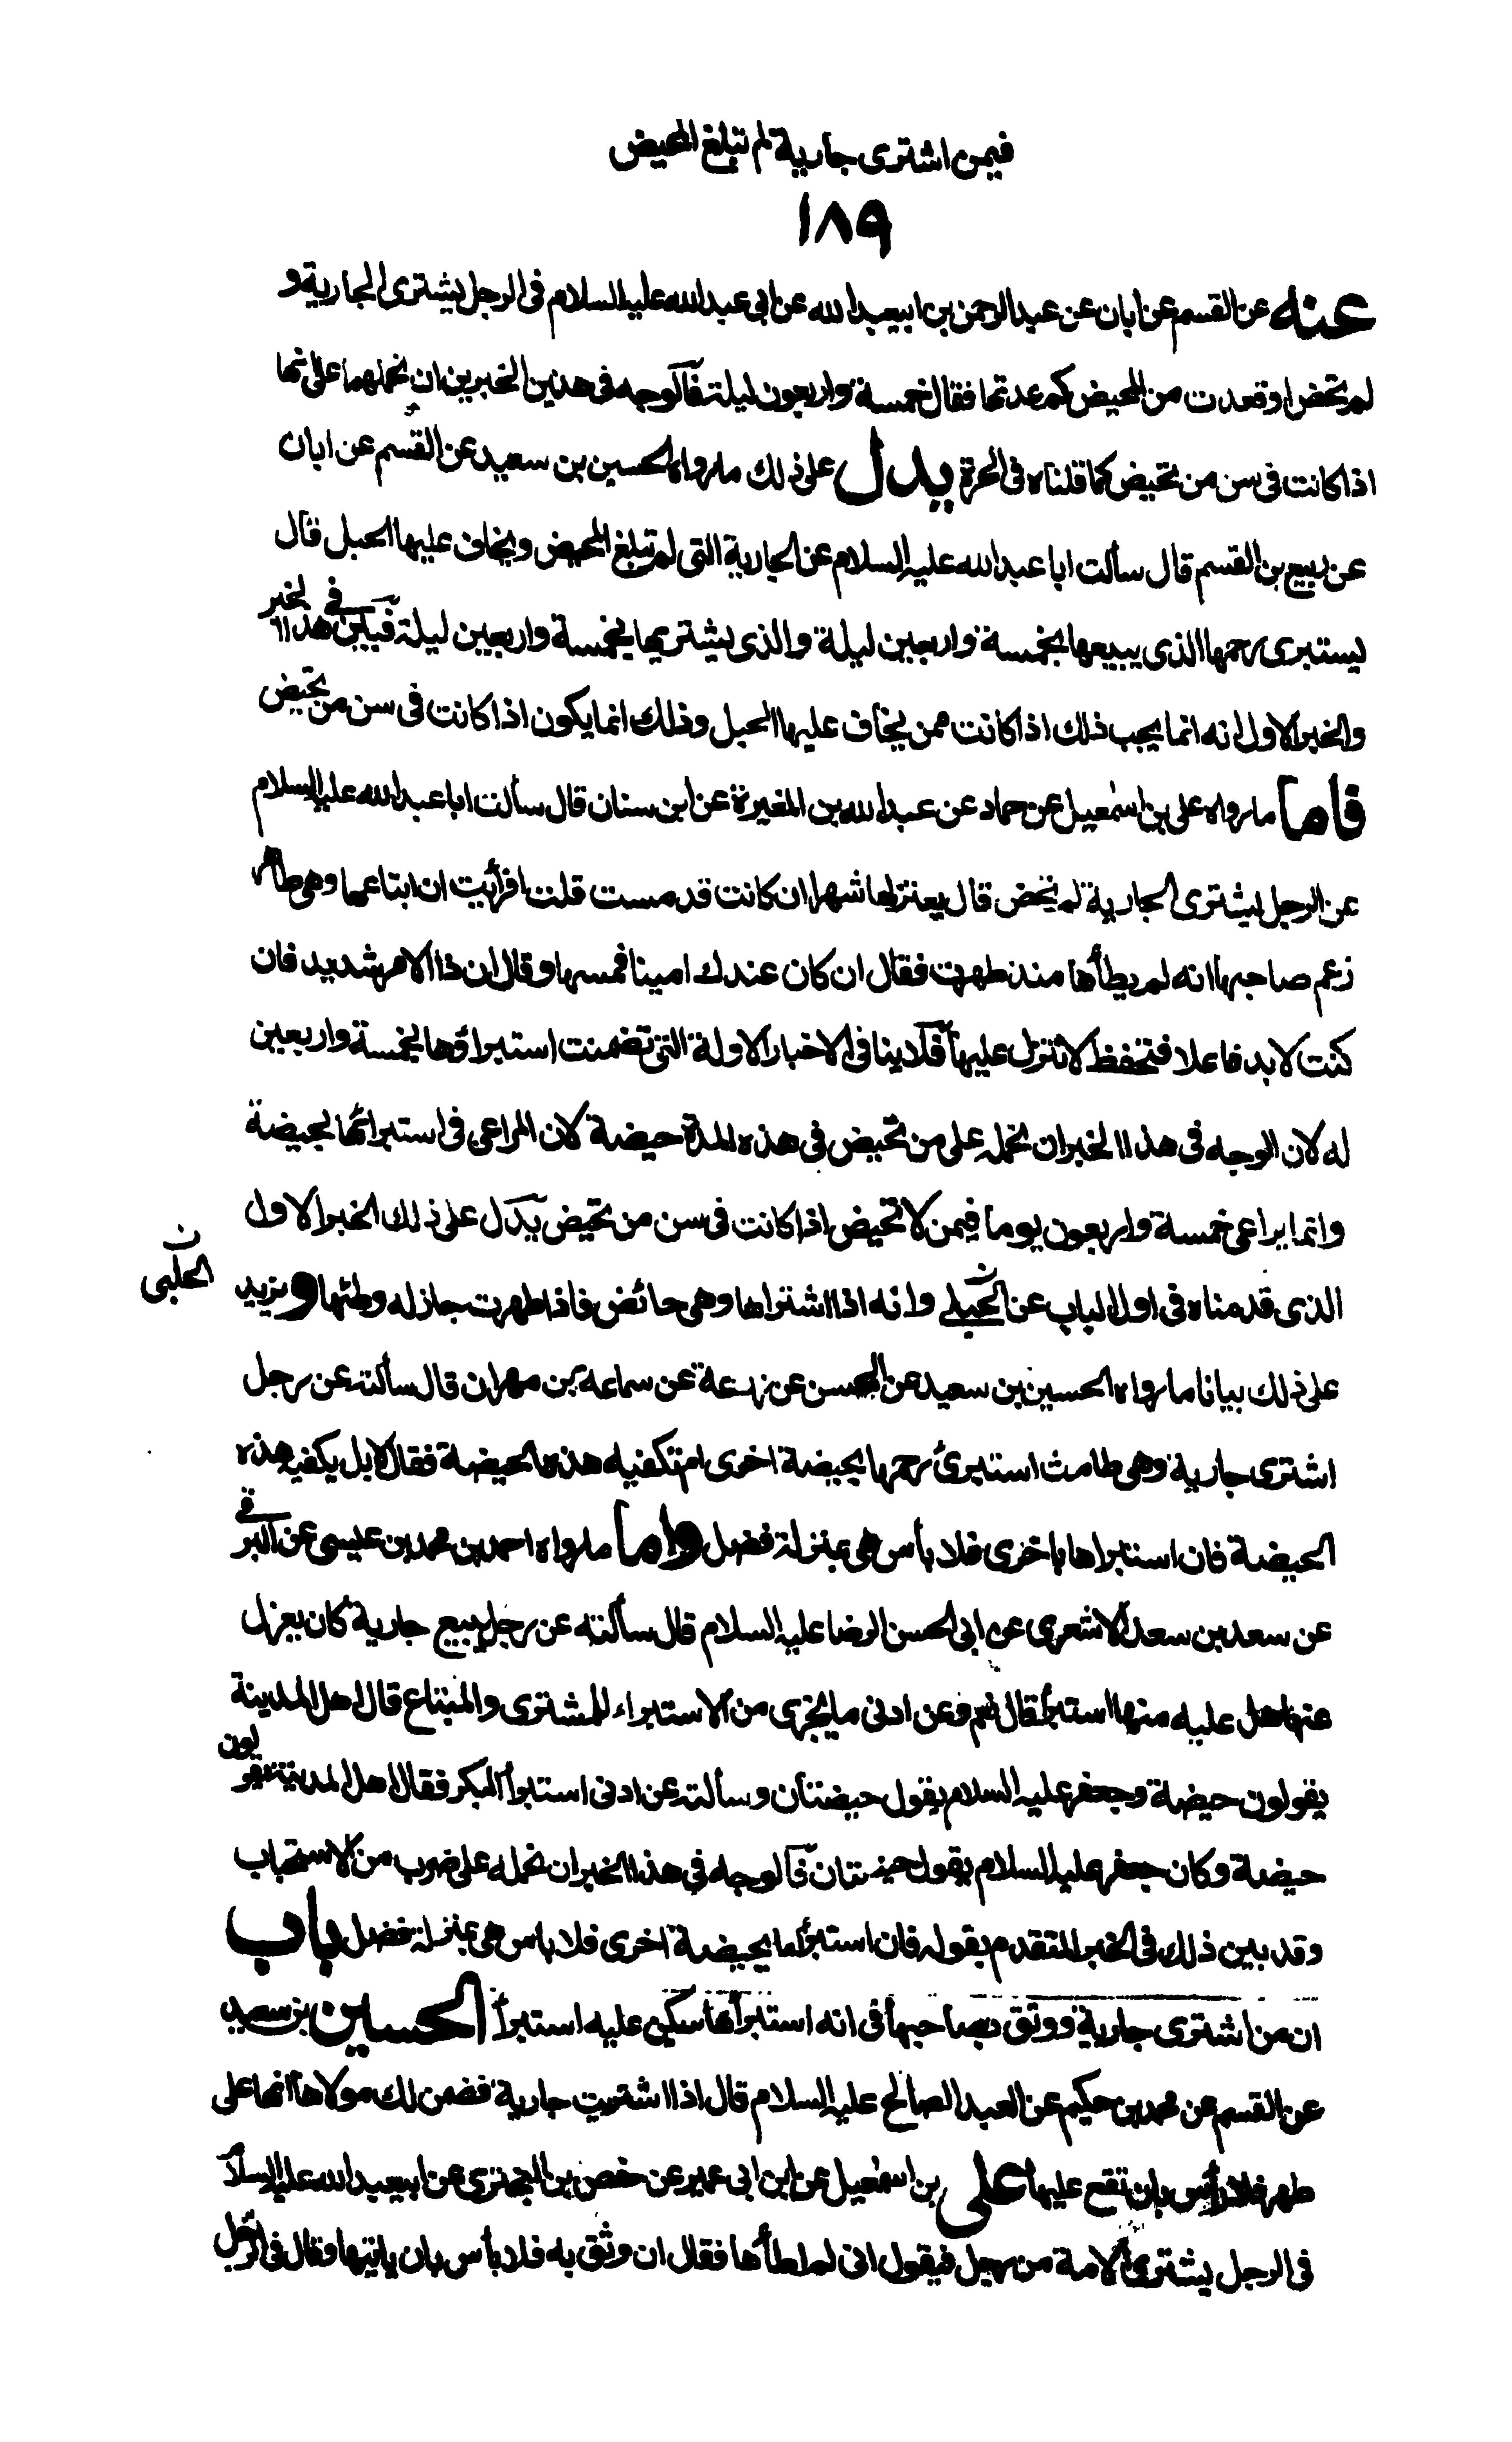 فيمن اشترى جارية لم تبلغ المحيض
١٨٩
عنه عن القسم عن ابان عن عبد الرحمن بن ابيعبد الله عن ابى عبد الله عليه السلام فى الرجل يشترى الجارية و
لم تحض او قعدت من المحيض كم عدتها فقال خمسة واربعون ليلة فآلوجه فى هذين الخبرين ان نحملهما على انها
اذا كانت فى سن من تحيض كما قلناه فى الحرة يدل على ذلك ما رواه الحسين بن سعيد عن القسم عن ابان
عن ربيع بن القسم قال سألت ابا عبد الله عليه السلام عن الجارية التى لم تبلغ المحيض ويخاف عليها الحبل قال
يستبرى رحمها الذى يبيعها بخمسة واربعين ليلة والذى يشتريها بخمسة واربعين ليلة فبيّن فى هذا الخبر
والخبر الاول انه انما يجب ذلك اذا كانت ممن يخاف عليها الحبل وذلك انما يكون اذا كانت فى سن من تحيض
فاما ما رواه على بن اسمعيل عن حماد عن عبد الله بن المغيرة عن ابن سنان قال سألت ابا عبد الله عليه السلام
عن الرجل يشترى الجارية لم تحض قال يعتزلها شهرا ان كانت قد مست قلت افرأيت ان ابتاعها وهى طاهر
زعم صاحبها انه لم يطأها منذ طهرت فقال ان كان عندك امينا فمسها وقال ان ذا الامر شديد فان
كنت لا بد فاعلا فتحفظ لا تنزل عليها فلا ينافى الاخبار الاولة التى تضمنت استبراؤها بخمسة واربعين
له لان الوجه فى هذا الخبر ان نحمله على من تحيض فى هذه المدة حيضة لان المراعى فى استبرائها بحيضة
وانما يراعى خمسة واربعون يوما فيمن لا تحيض اذا كانت فى سن من تحيض يدل على ذلك الخبر الاول
الذى قدمناه فى اول الباب عن الحبلى وانه اذا اشتراها وهى حائض فاذا طهرت جاز له وطئها ويزيد
ن الحلبى
على ذلك بيانا ما رواه الحسين بن سعيد عن الحسن عن زرعة عن سماعة بن مهران قال سألته عن رجل
اشترى جارية وهى طامث استبرئ رحمها بحيضة اخرى ام تكفيه هذه الحيضة فقال لا بل يكفيه هذه
الحيضة فان استبراها باخرى فلا بأس هى بمنزلة فضل واما ما رواه احمد بن محمد بن عيسى عن البرقى
عن سعد بن سعد الاشعرى عن ابى الحسن الرضا عليه السلام قال سألته عن رجل يبيع جارية كان يعزل
عنها هل عليه منها استبرأ قال نعم وعن ادنى ما يجزى من الاستبراء للمشترى والمبتاع قال اهل المدينة
يقولون حيضة وجعفر عليه السلام يقول حيضتان وسألته عن ادنى استبرأ البكر فقال اهل المدينة يقولون
حيضة وكان جعفر عليه السلام يقول حيضتان فآلوجه فى هذا الخبر ان نحمله على ضرب من الاستحباب
وقد بين ذلك فى الخبر المتقدم بقوله فان استبرأها بحيضة اخرى فلا باس هى بمنزلة فضل باب
ان من اشترى جارية ووثق بصاحبها فى انه استبرأها عليه استبرأ الحسين بن سعيد
عن القسم عن محمد بن حكيم عن العبد الصالح عليه السلام قال اذا اشتريت جارية فضمن لك مولاها انها على
طهر فلا بأس بان تقع عليها على بن اسمعيل عن ابن ابى عمير عن حفص بن البخترى عن ابيعبد الله عليه السلام
فى الرجل يشترى الامة من رجل فيقول انى لم اطأها فقال ان وثق به فلا بأس بان ياتيها وقال فى الرجل